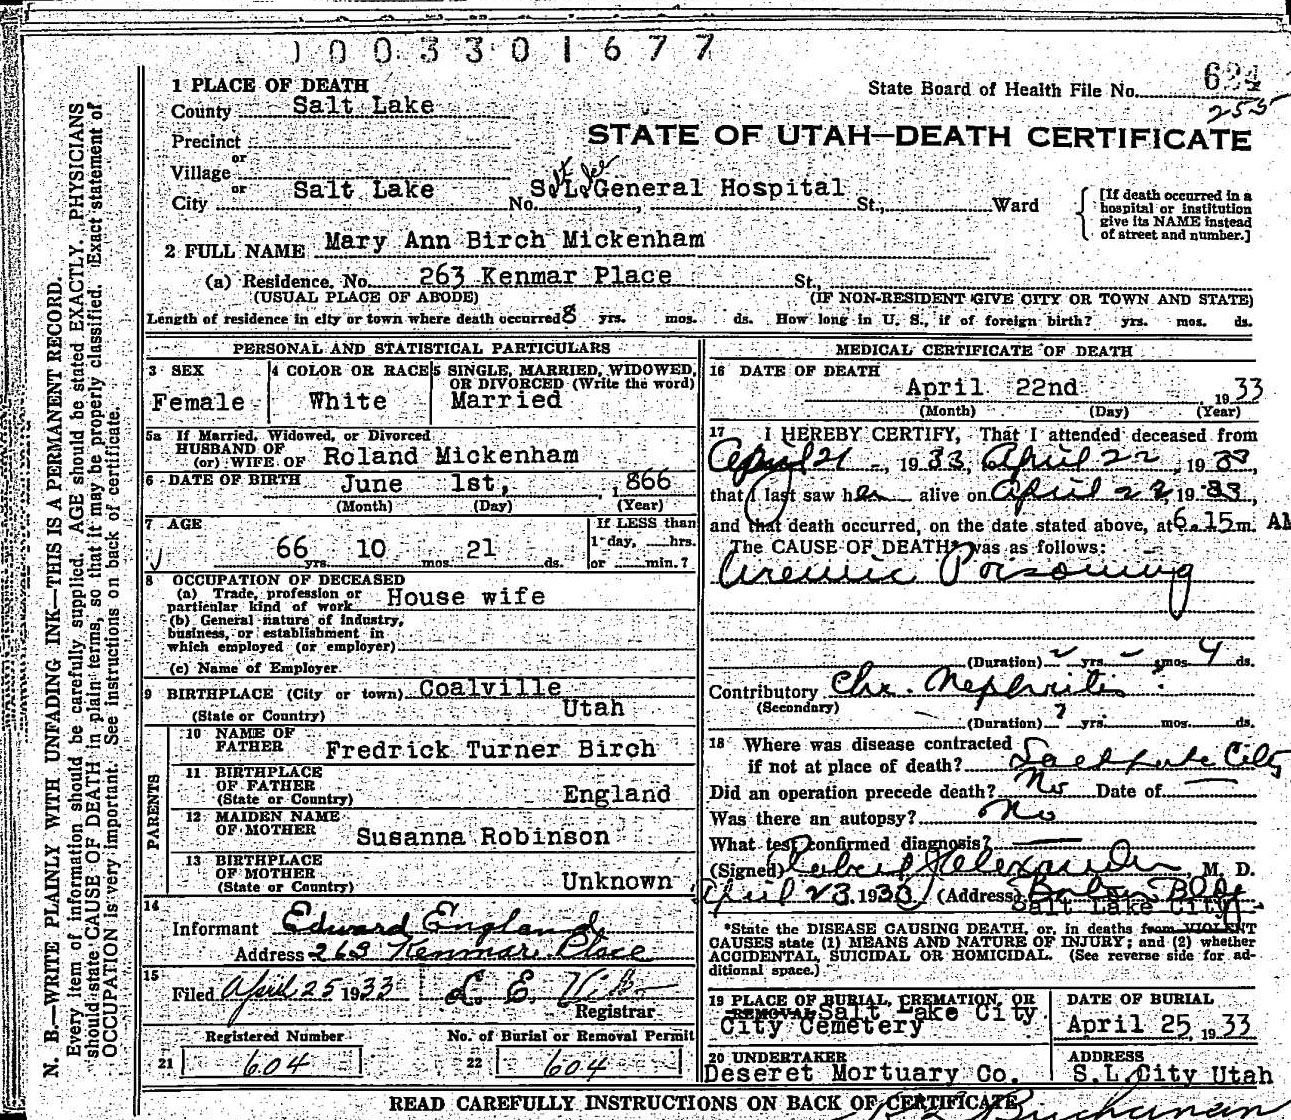 1003301677
1 PLACE OF DEATH
State Board of Health File No. 624
255
County Salt Lake
STATE OF UTAH—DEATH CERTIFICATE
Precinct
or
Village
or
City Salt Lake No. S.L. General Hospital St., Ward
[If death occurred in a hospital or institution give its NAME instead of street and number.]
2 FULL NAME Mary Ann Birch Mickenham
(a) Residence. No. 263 Kenmar Place St.,
(USUAL PLACE OF ABODE) (IF NON-RESIDENT GIVE CITY OR TOWN AND STATE)
Length of residence in city or town where death occurred 8 yrs. mos. ds. How long in U. S., if of foreign birth? yrs. mos. ds.
PERSONAL AND STATISTICAL PARTICULARS
3 SEX
Female
4 COLOR OR RACE
White
5 SINGLE, MARRIED, WIDOWED,
OR DIVORCED (Write the word)
Married
5a If Married, Widowed, or Divorced
HUSBAND OF
(or) WIFE OF Roland Mickenham
6 DATE OF BIRTH June 1st, 1866
(Month) (Day) (Year)
7 AGE
66 yrs. 10 mos. 21 ds.
If LESS than
1 day, hrs.
or min.?
8 OCCUPATION OF DECEASED
(a) Trade, profession or
particular kind of work House wife
(b) General nature of industry,
business, or establishment in
which employed (or employer)
(c) Name of Employer
9 BIRTHPLACE (City or town) Coalville
(State or Country) Utah
PARENTS
10 NAME OF
FATHER Fredrick Turner Birch
11 BIRTHPLACE
OF FATHER
(State or Country) England
12 MAIDEN NAME
OF MOTHER Susanna Robinson
13 BIRTHPLACE
OF MOTHER
(State or Country) Unknown
14
Informant Edward England
Address 263 Kenmar Place
15
Filed April 25 1933 L. E.
Registrar
Registered Number
21 604
No. of Burial or Removal Permit
22 604
MEDICAL CERTIFICATE OF DEATH
16 DATE OF DEATH
April 22nd 1933
(Month) (Day) (Year)
17 I HEREBY CERTIFY, That I attended deceased from
April 21, 1933, to April 22, 1933,
that I last saw her alive on April 22 1933,
and that death occurred, on the date stated above, at 6.15 m. AM
The CAUSE OF DEATH* was as follows:
Uremic Poisoning
(Duration) yrs. mos. 4 ds.
Contributory Chr. Nephritis
(Secondary)
(Duration) ? yrs. mos. ds.
18 Where was disease contracted
if not at place of death? Salt Lake City
Did an operation precede death? No Date of
Was there an autopsy? No
What test confirmed diagnosis?
(Signed) Alexander, M. D.
April 23 1933 (Address) Bldg
Salt Lake City
*State the DISEASE CAUSING DEATH, or, in deaths from VIOLENT
CAUSES state (1) MEANS AND NATURE OF INJURY; and (2) whether
ACCIDENTAL, SUICIDAL OR HOMICIDAL. (See reverse side for ad-
ditional space.)
19 PLACE OF BURIAL, CREMATION, OR
REMOVAL Salt Lake City
City Cemetery
DATE OF BURIAL
April 25, 1933
20 UNDERTAKER
Deseret Mortuary Co.
ADDRESS
S.L.City Utah
READ CAREFULLY INSTRUCTIONS ON BACK OF CERTIFICATE.
N. B.—WRITE PLAINLY WITH UNFADING INK—THIS IS A PERMANENT RECORD.
Every item of information should be carefully supplied. AGE should be stated EXACTLY. PHYSICIANS
should state CAUSE OF DEATH in plain terms, so that it may be properly classified. Exact statement of
OCCUPATION is very important. See instructions on back of certificate.